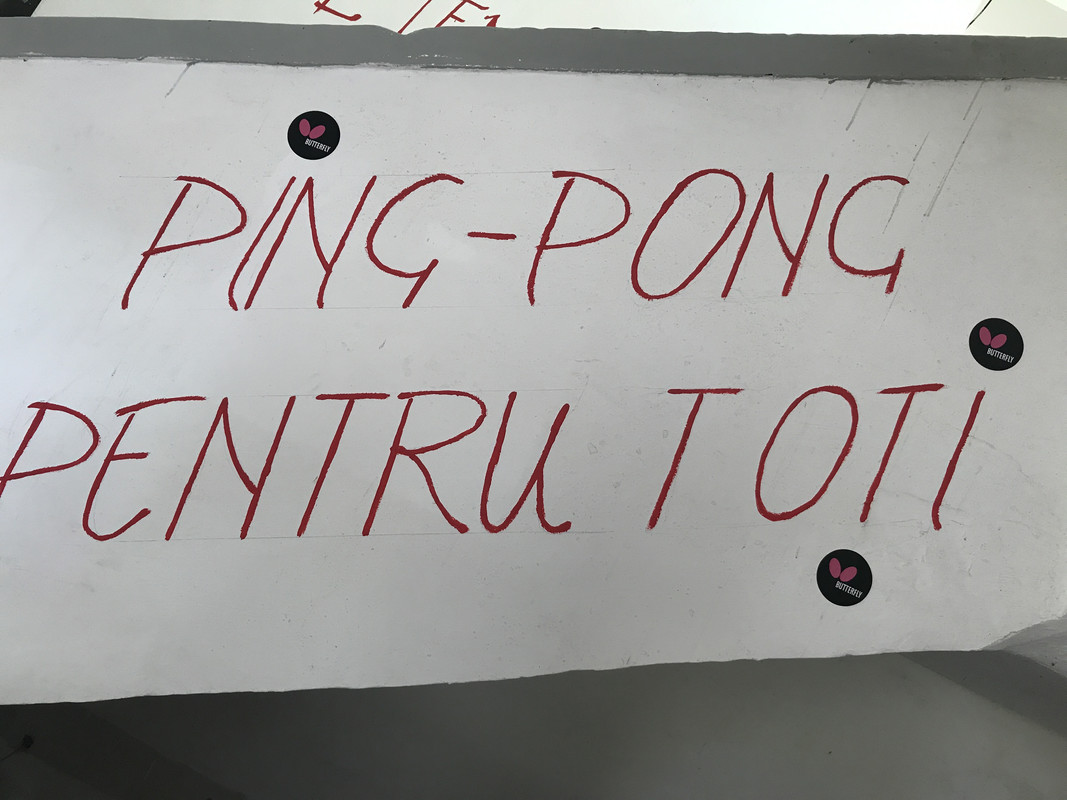 BUTTERFLY
PING-PONG
BUTTERFLY
PENTRU TOTI
BUTTERFLY